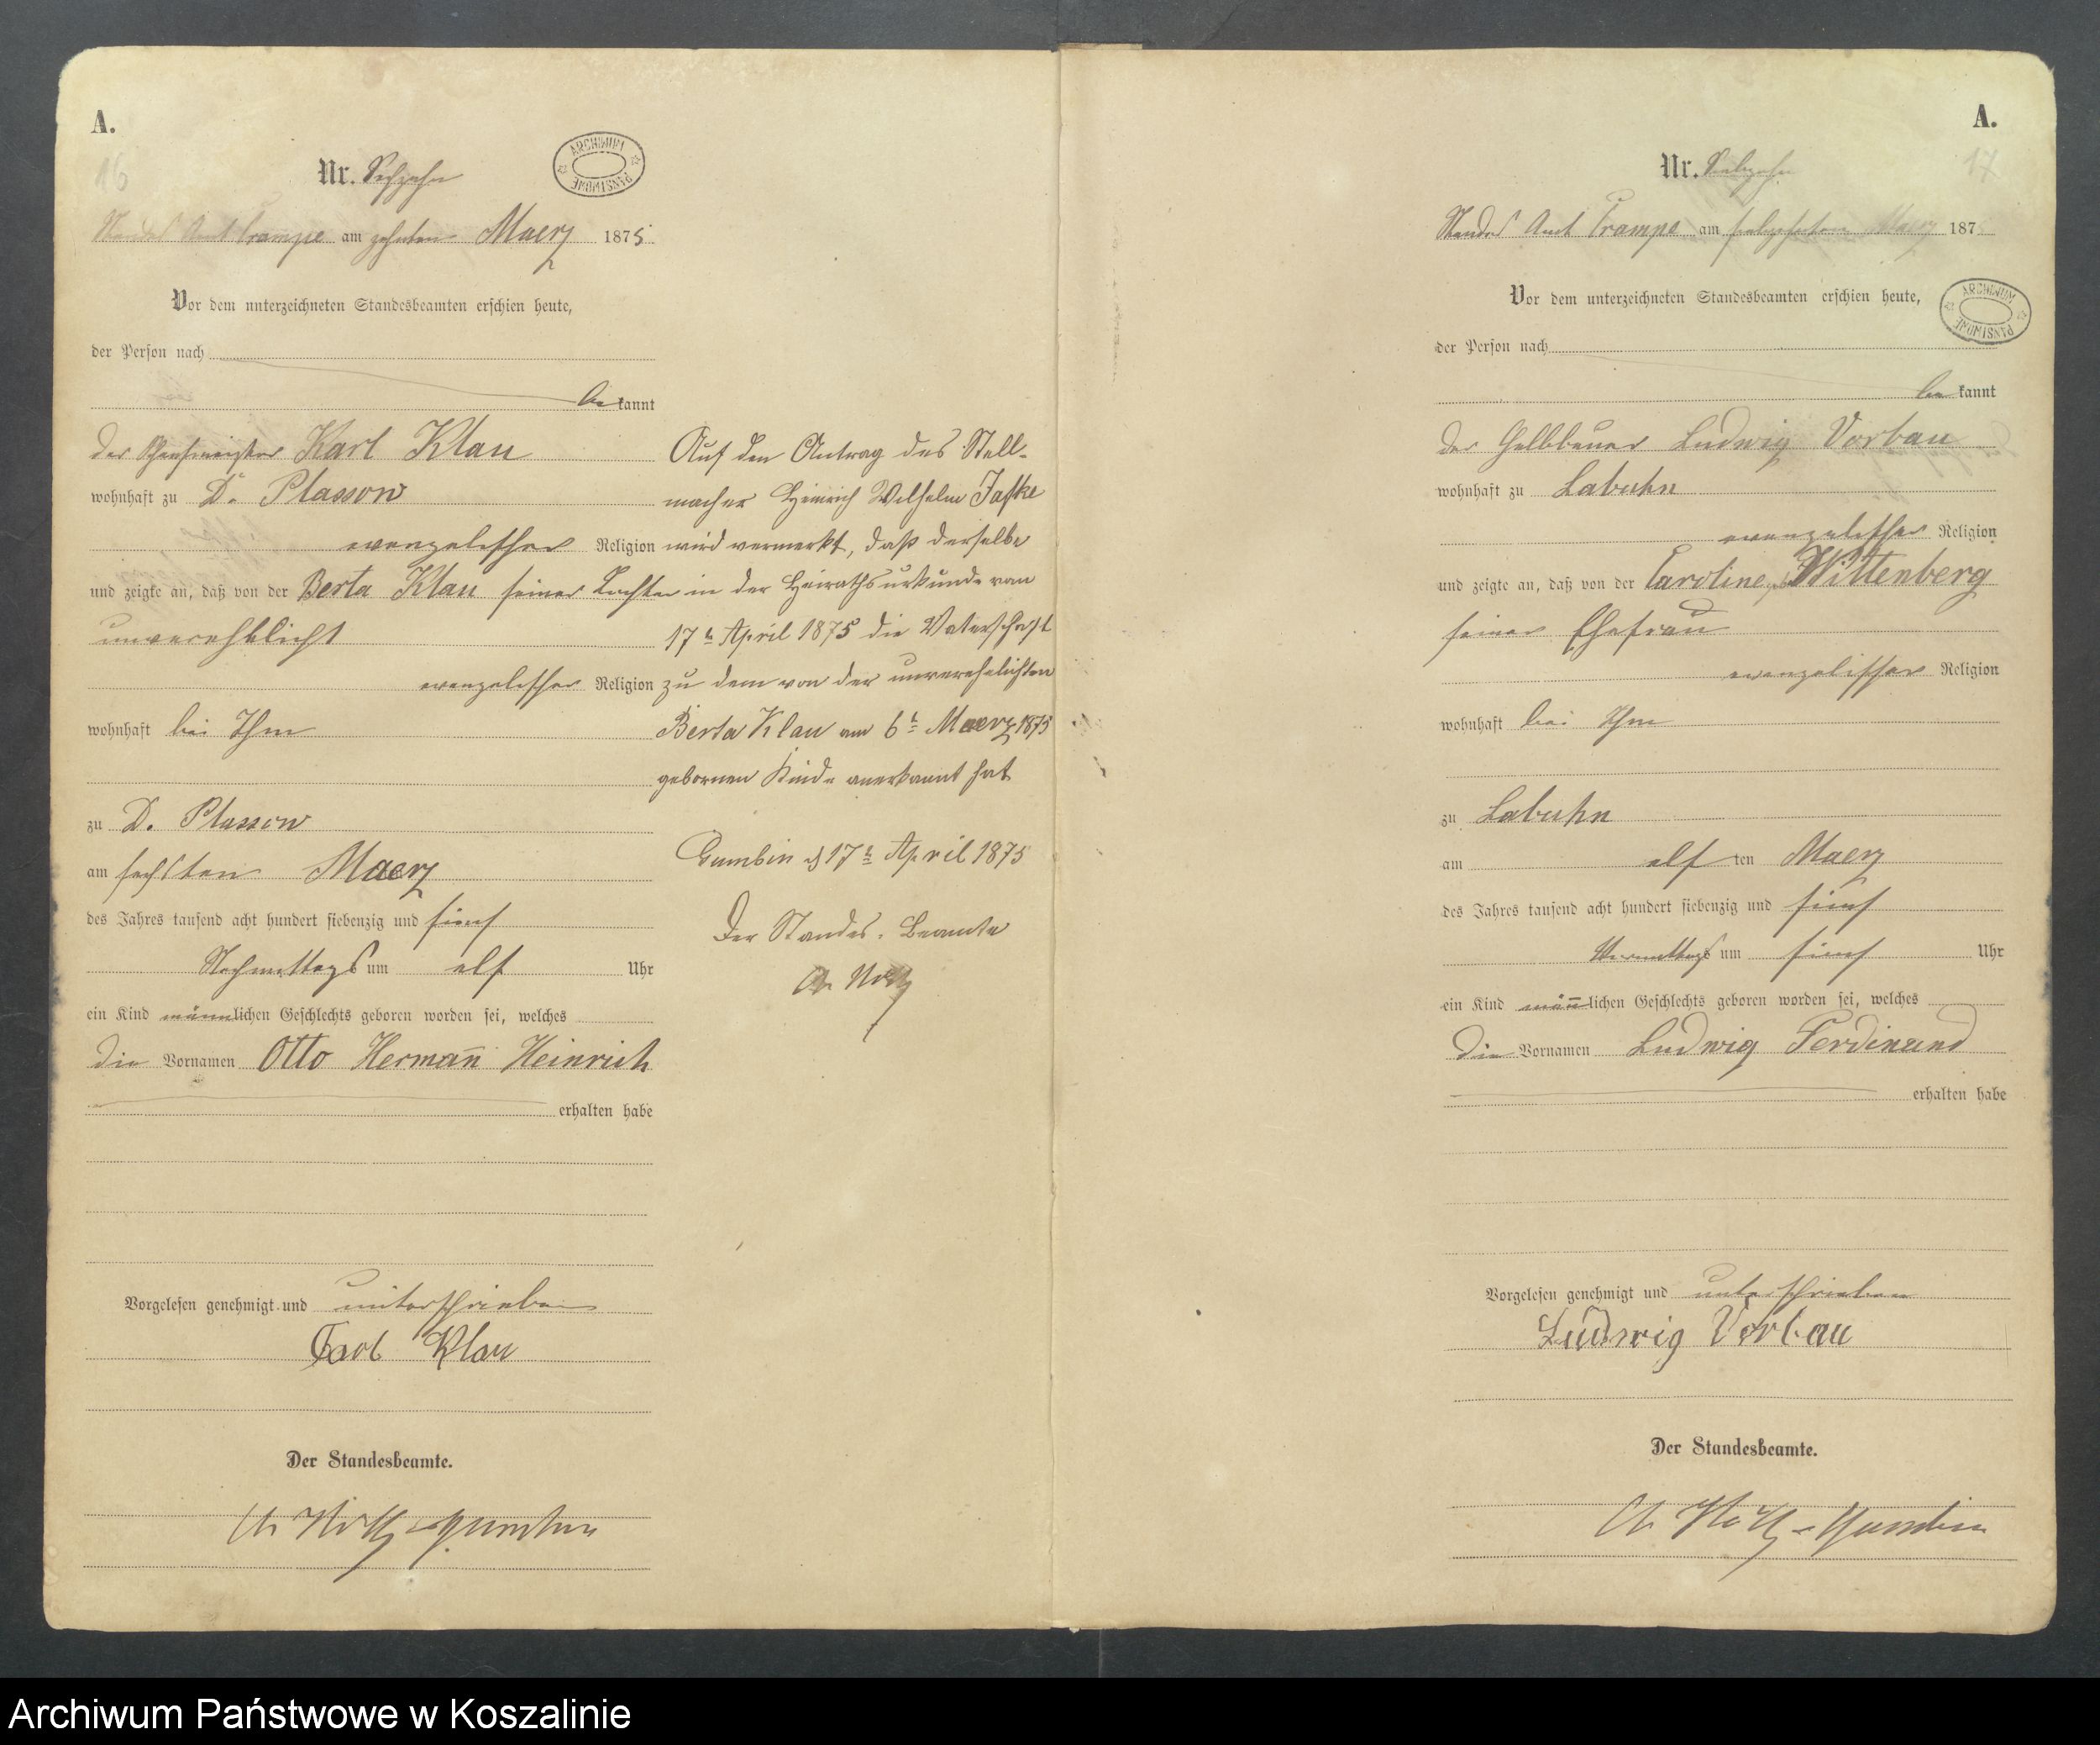 A.
16
Nr. Sechzehn
ARCHIWUM PAŃSTWOWE
Standes Amt Crampe am zehnten Maerz 1875.
Vor dem unterzeichneten Standesbeamten erschien heute,
der Person nach
be kannt
der Karl Klau
wohnhaft zu D. Plassow
evangelischer Religion
und zeigte an, daß von der Berta Klau seiner Tochter
unverehelicht
evangelischer Religion
wohnhaft bei Ihm
zu D. Plassow
am sechsten Maerz
des Jahres tausend acht hundert siebenzig und fünf
Nachmittags um elf Uhr
ein Kind männlichen Geschlechts geboren worden sei, welches
die Vornamen Otto Hermann̄ Heinrich
erhalten habe
Vorgelesen genehmigt und unterschrieben
Carl Klau
Der Standesbeamte.
Auf den Antrag des Stell-
macher Heinrich Wilhelm Jaffke
wird vermerkt, daß derselbe
in der Heirathsurkunde vom
17t April 1875 die Vaterschaft
zu dem von der unverehelichten
Berta Klau am 6t Maerz 1875
gebornen Kinde anerkannt hat
Gumbin d 17t April 1875
Der Standes-Beamte
A.
17
Nr. Siebzehn
Standes Amt Crampe am siebzehnten Maerz 187
Vor dem unterzeichneten Standesbeamten erschien heute,
ARCHIWUM PAŃSTWOWE
der Person nach
be kannt
der Halbbauer Ludwig Vorbau
wohnhaft zu Labuhn
evangelischer Religion
und zeigte an, daß von der Caroline geb Wittenberg
seiner Ehefrau
evangelischer Religion
wohnhaft bei Ihm
zu Labuhn
am elf ten Maerz
des Jahres tausend acht hundert siebenzig und fünf
Vormittags um fünf Uhr
ein Kind männlichen Geschlechts geboren worden sei, welches
die Vornamen Ludwig Ferdinand
erhalten habe
Vorgelesen genehmigt und unterschrieben
Ludwig Vorbau
Der Standesbeamte.
Archiwum Państwowe w Koszalinie